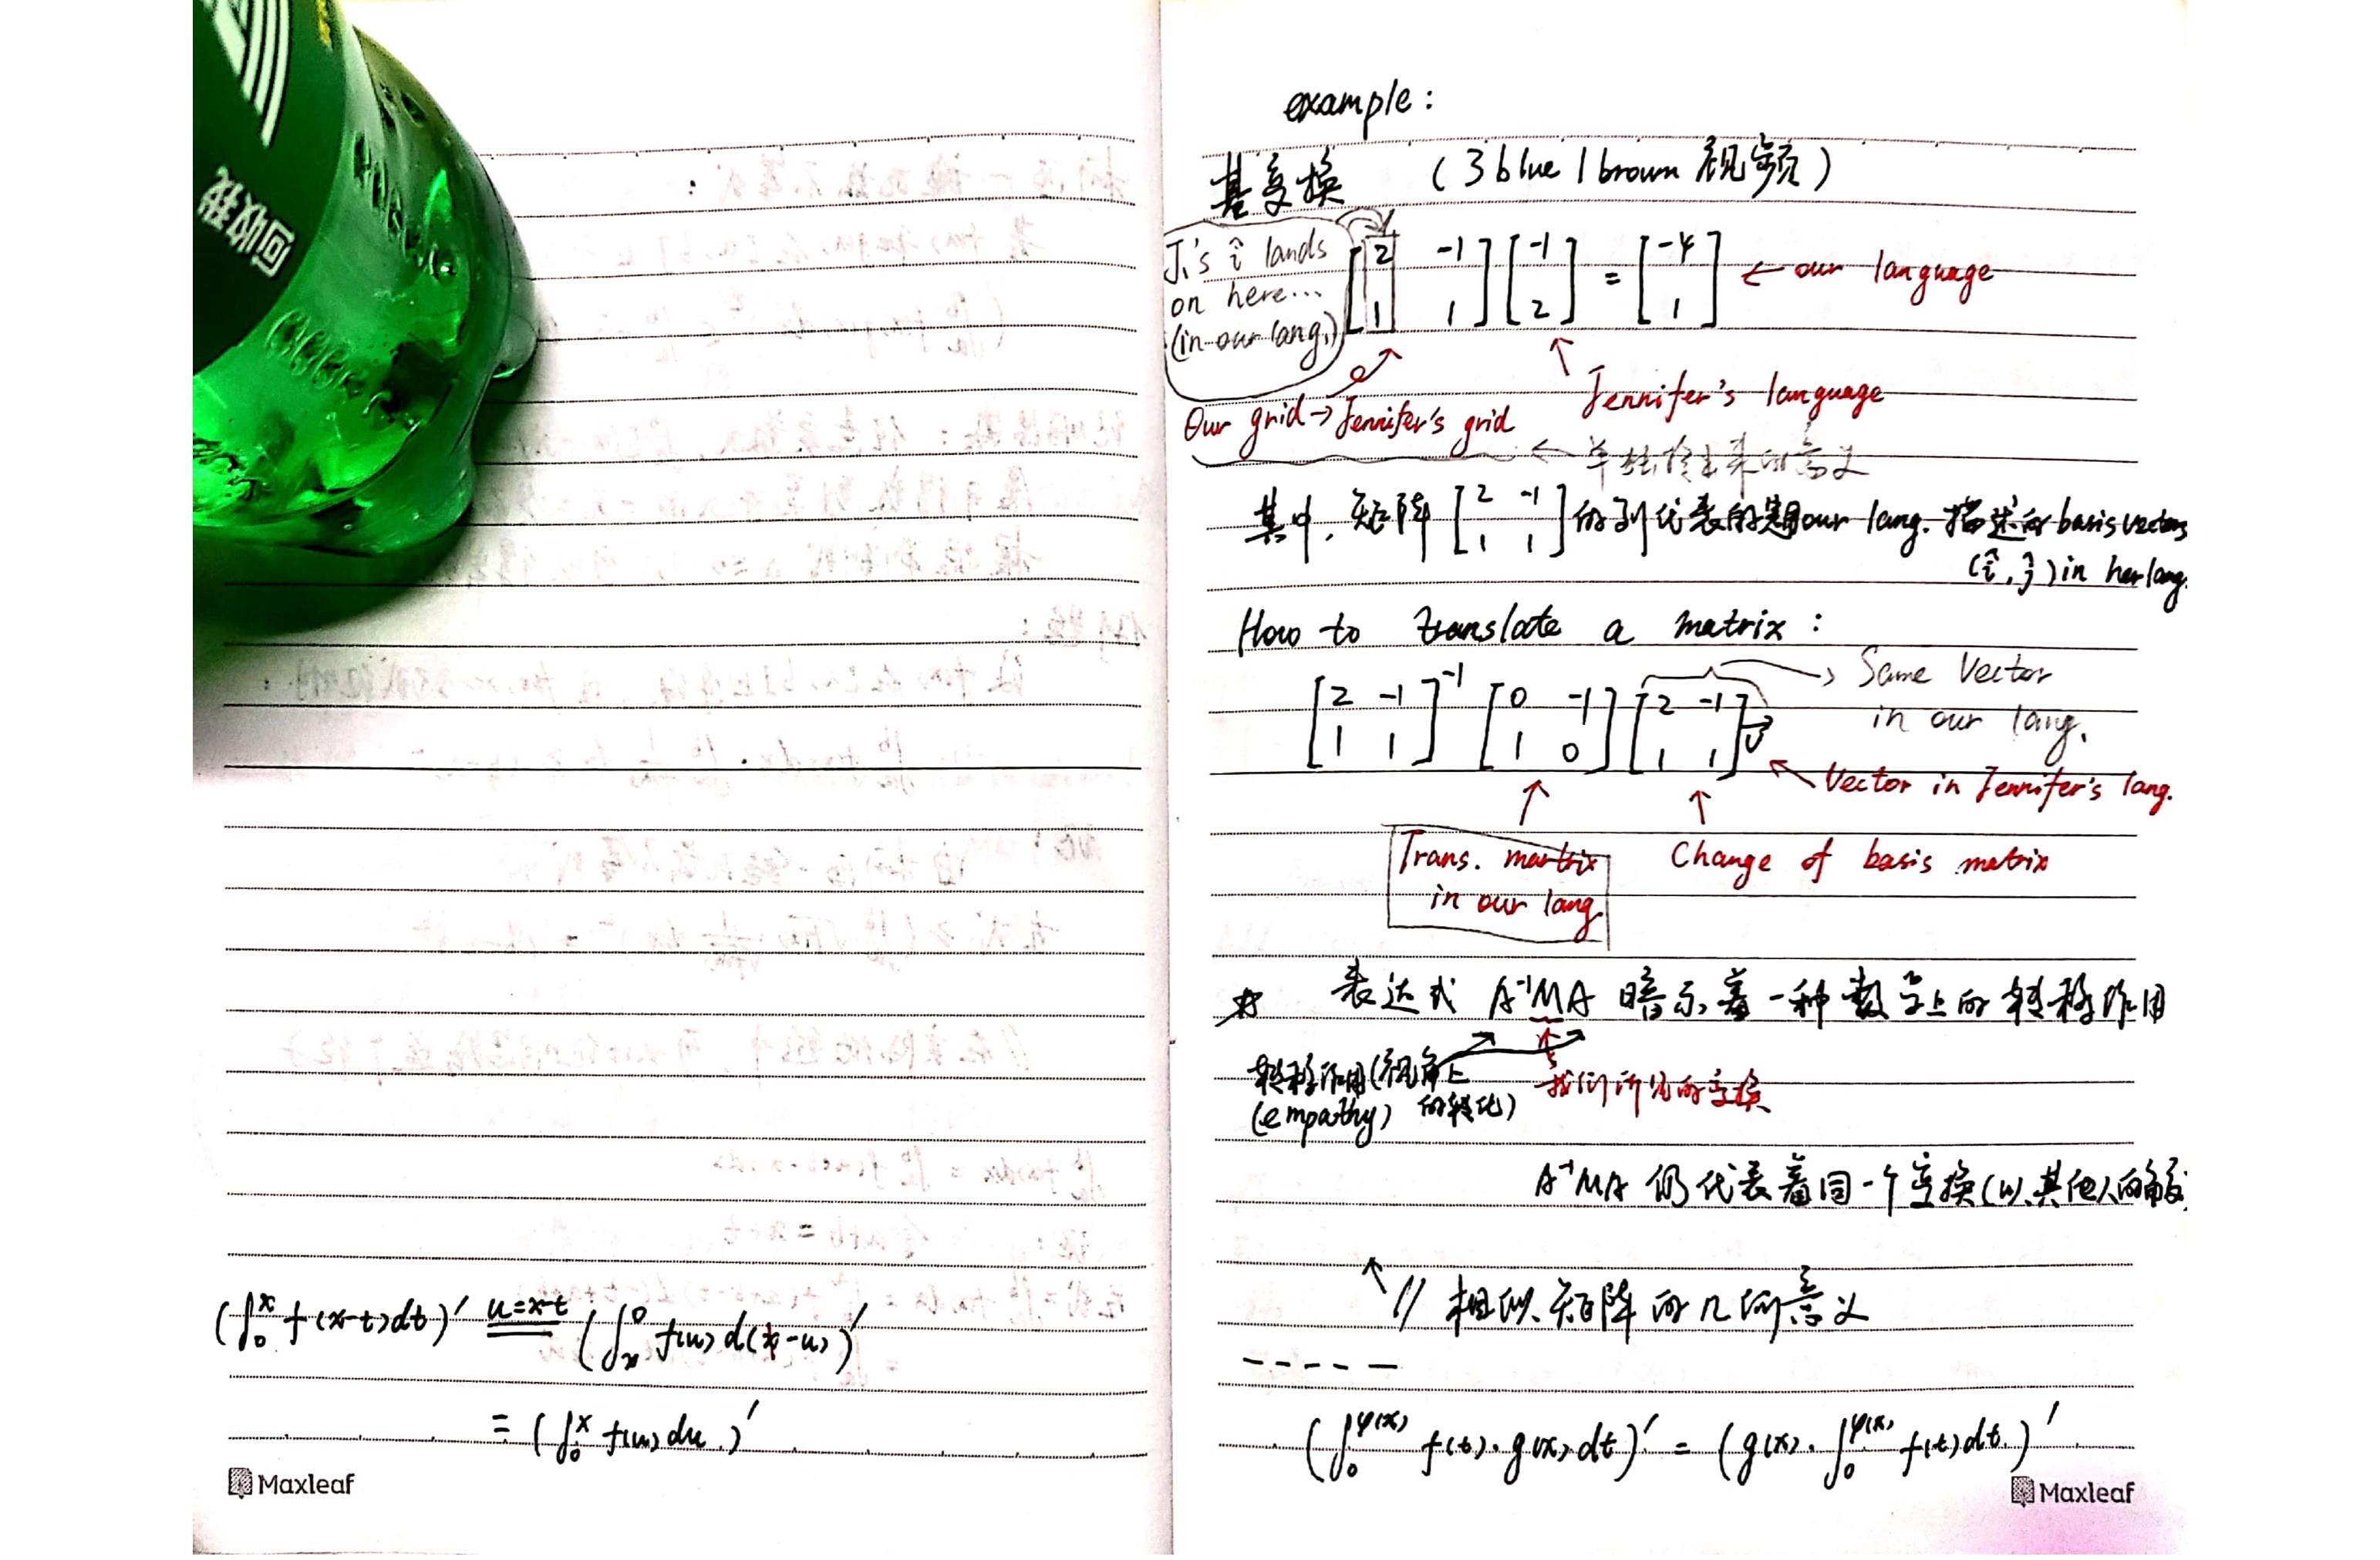 (∫₀ˣ f(x-t)dt)′ u=x-t (∫ₓ⁰ f(u) d(x-u))′
= (∫₀ˣ f(u) du)′
Maxleaf
example:
基变换 (3blue1brown 视频)
J.'s î lands
on here...
(in our lang.)
[2 -1; 1 1] [-1; 2] = [-4; 1] ← our language
Our grid → Jennifer's grid
Jennifer's language
← 单独拎出来的意义
其中, 矩阵 [2 -1; 1 1] 的列代表的是用our lang. 描述的basis vectors
(î, ĵ) in her lang.
How to translate a matrix:
[2 -1; 1 1]⁻¹ [0 -1; 1 0] [2 -1; 1 1] v⃗
→ Same Vector
in our lang.
Vector in Jennifer's lang.
Trans. martrix
in our lang
Change of basis matrix
☆ 表达式 A⁻¹MA 暗示着一种数学上的转移作用
转移作用(视角上
(empathy) 的转化)
我们所见的变换
A⁻¹MA 仍代表着同一个变换(以其他人的角度
↖ // 相似矩阵的几何意义
-----
(∫₀^φ(x) f(t)·g(x)dt)′ = (g(x)·∫₀^φ(x) f(t)dt)′
Maxleaf